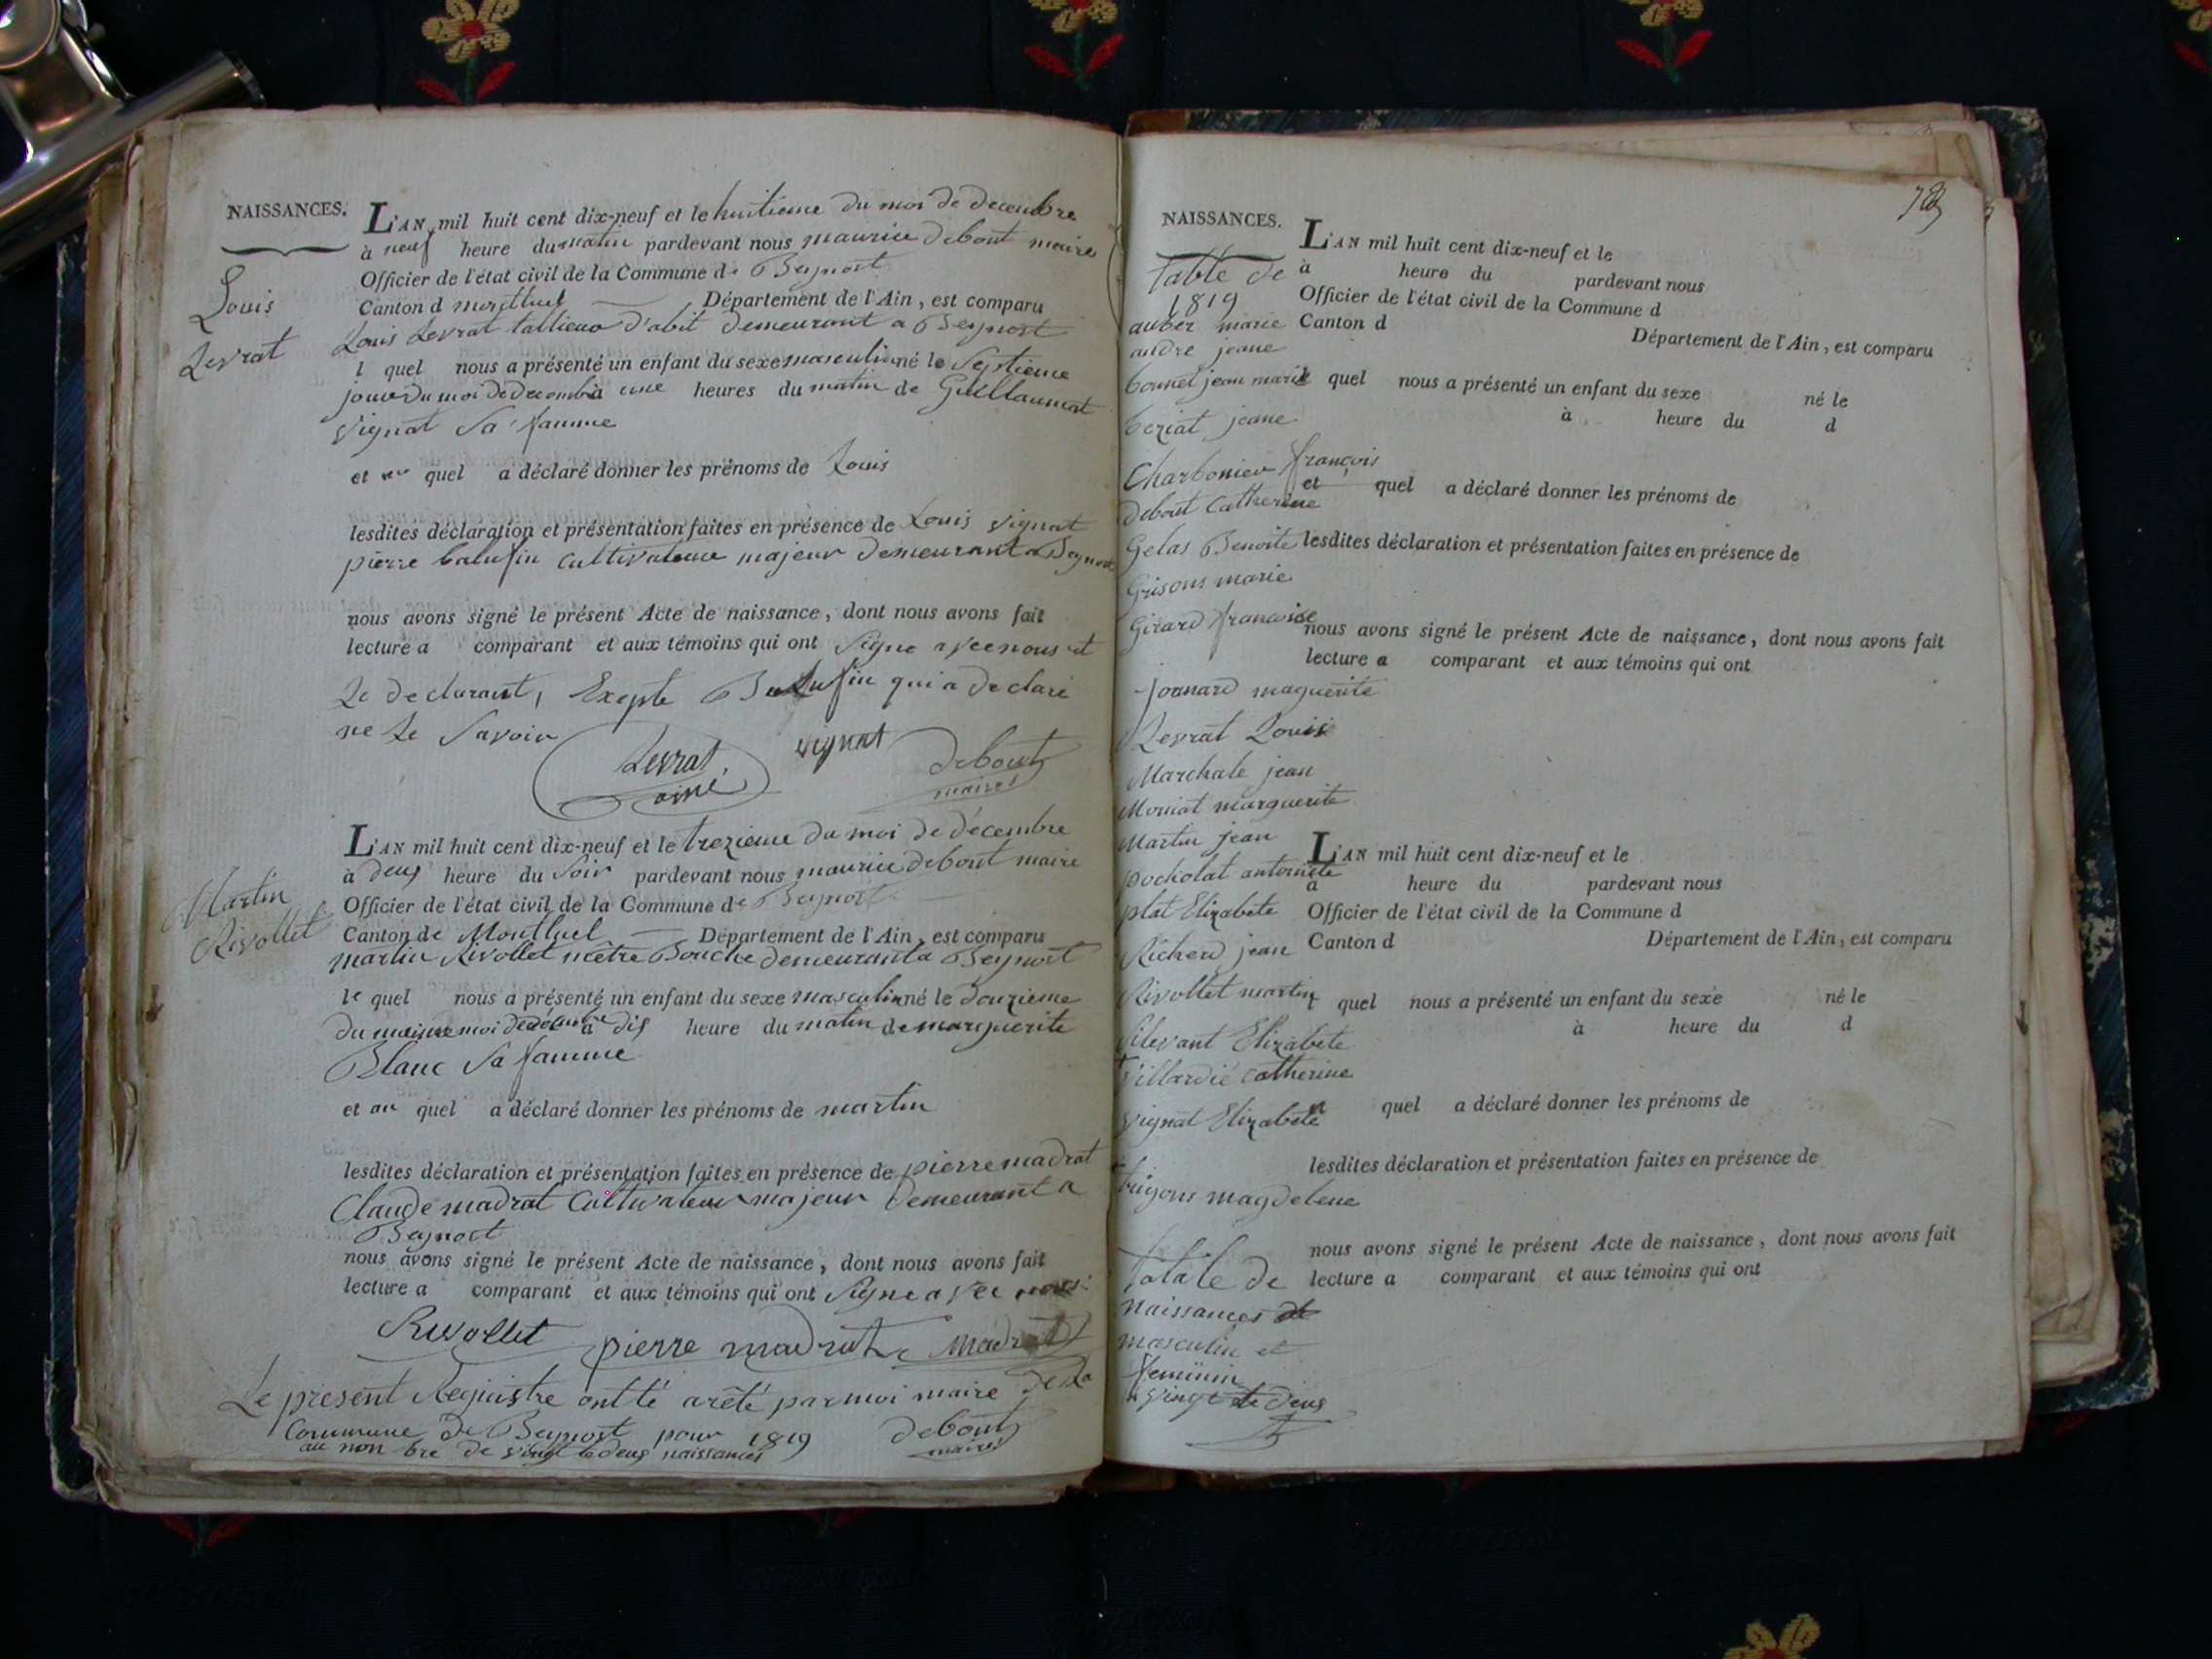 NAISSANCES.
Louis
Levrat
L'AN mil huit cent dix-neuf et le huitieme du moi de decembre
à neuf heure du matin pardevant nous maurice debout maire
Officier de l'état civil de la Commune de Beynost
Canton d montluel Département de l'Ain, est comparu
Louis Levrat tallieur d'abit demeurant a Beynost
l quel nous a présenté un enfant du sexe masculin né le Septieme
jour du moi de decembre à une heures du matin de Guillaumat
vignat Sa famme
et au quel a déclaré donner les prénoms de Louis
lesdites déclaration et présentation faites en présence de Louis vignat
pierre balufin cultivateur majeur demeurant a Beynost
nous avons signé le présent Acte de naissance, dont nous avons fait
lecture a comparant et aux témoins qui ont signe avec nous et
Le declarant, Exepte Balufin qui a declare
ne le Savoir
Levrat vignat debout
ainé maire
Martin
Rivollet
L'AN mil huit cent dix-neuf et le trezieme du moi de décembre
à deus heure du soir pardevant nous maurice debout maire
Officier de l'état civil de la Commune de Beynost
Canton de Montluel Département de l'Ain, est comparu
martin Rivollet mêtre Bouche demeurant a Beynost
le quel nous a présenté un enfant du sexe masculin né le douzieme
du maime moi de décembre à dis heure du matin de marguerite
Blanc Sa famme
et au quel a déclaré donner les prénoms de martin
lesdites déclaration et présentation faites en présence de pierre madrat
Claude madrat Cultivateur majeur demeurant a
Beynost
nous avons signé le présent Acte de naissance, dont nous avons fait
lecture a comparant et aux témoins qui ont Signe avec nous
Rivollet pierre madrat Madrat
Le present Regisstre ont té arêté par moi maire de la
Commune de Beynost pour 1819 debout
au non bre de vingt te deus naissances maire
NAISSANCES.
table de
1819
auber marie
andre jeane
bonnet jean marie
beziat jeane
Charbonier françois
debout Catherine
Gelas Benoite
Grisons marie
Girard francoise
joanard maguerite
Levrat Louis
Marchale jean
Moniat marguerite
Martin jean
pocholat antoinete
plat Elizabete
Richerd jean
Rivollet martin
Silevant Elizabete
Villardié catherine
vignat Elizabete
trigons magdelene
totale de
naissances
masculin et
feminin
vingt te deus
L'AN mil huit cent dix-neuf et le
à heure du pardevant nous
Officier de l'état civil de la Commune d
Canton d Département de l'Ain, est comparu
l quel nous a présenté un enfant du sexe né le
à heure du d
et quel a déclaré donner les prénoms de
lesdites déclaration et présentation faites en présence de
nous avons signé le présent Acte de naissance, dont nous avons fait
lecture a comparant et aux témoins qui ont
L'AN mil huit cent dix-neuf et le
à heure du pardevant nous
Officier de l'état civil de la Commune d
Canton d Département de l'Ain, est comparu
l quel nous a présenté un enfant du sexe né le
à heure du d
quel a déclaré donner les prénoms de
lesdites déclaration et présentation faites en présence de
nous avons signé le présent Acte de naissance, dont nous avons fait
lecture a comparant et aux témoins qui ont